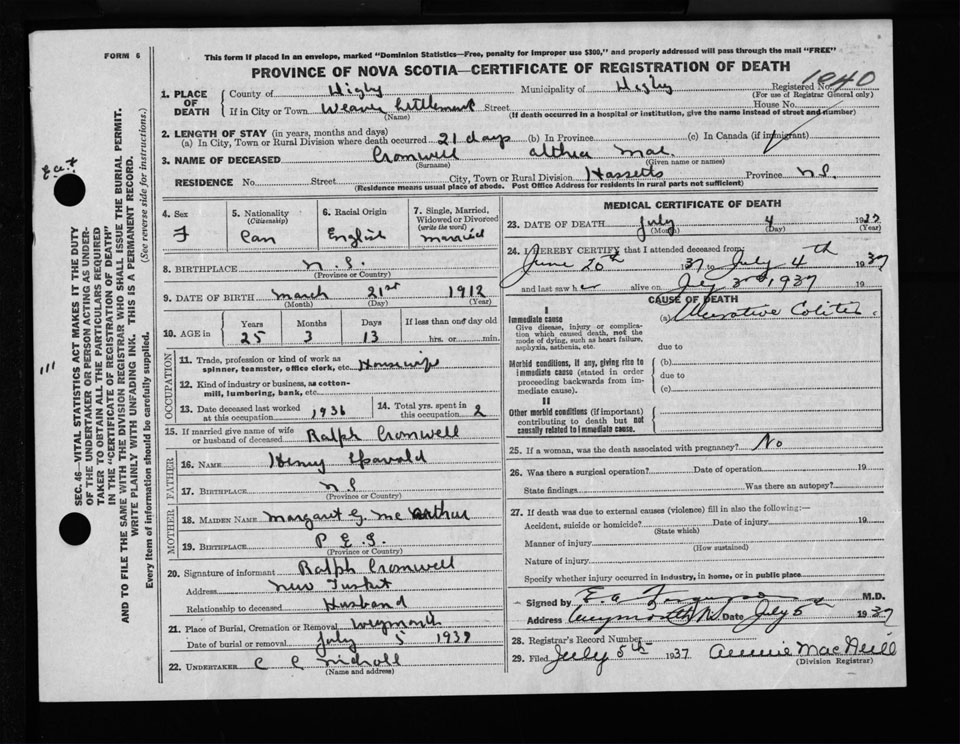 FORM 6
This form if placed in an envelope, marked "Dominion Statistics—Free, penalty for improper use $300," and properly addressed will pass through the mail "FREE"
PROVINCE OF NOVA SCOTIA—CERTIFICATE OF REGISTRATION OF DEATH
Registered No. 1840
(For use of Registrar General only)
1. PLACE OF DEATH
County of Digby Municipality of Digby
If in City or Town Weaver Settlement Street House No.
(Name) (If death occurred in a hospital or institution, give the name instead of street and number)
2. LENGTH OF STAY (in years, months and days)
(a) In City, Town or Rural Division where death occurred 21 days (b) In Province (c) In Canada (if immigrant)
3. NAME OF DECEASED Cromwell Althea Mae.
(Surname) (Given name or names)
RESIDENCE No. Street City, Town or Rural Division Hassetts Province N.S.
(Residence means usual place of abode. Post Office Address for residents in rural parts not sufficient)
4. Sex F
5. Nationality (Citizenship) Can
6. Racial Origin English
7. Single, Married, Widowed or Divorced (write the word) Married
8. BIRTHPLACE N.S.
(Province or Country)
9. DATE OF BIRTH March 21st 1912
(Month) (Day) (Year)
10. AGE in Years Months Days If less than one day old
25 3 13 hrs. or min.
OCCUPATION
11. Trade, profession or kind of work as spinner, teamster, office clerk, etc. Housewife
12. Kind of industry or business, as cotton-mill, lumbering, bank, etc.
13. Date deceased last worked at this occupation 1936
14. Total yrs. spent in this occupation 2
15. If married give name of wife or husband of deceased Ralph Cromwell
FATHER
16. NAME Henry
17. BIRTHPLACE N.S.
(Province or Country)
MOTHER
18. MAIDEN NAME Margaret G. McArthur
19. BIRTHPLACE P.E.I.
(Province or Country)
20. Signature of informant Ralph Cromwell
Address New Tusket
Relationship to deceased Husband
21. Place of Burial, Cremation or Removal Weymouth
Date of burial or removal July 5 1937
22. UNDERTAKER C C Nicholl
(Name and address)
MEDICAL CERTIFICATE OF DEATH
23. DATE OF DEATH July 4 1937
(Month) (Day) (Year)
24. I HEREBY CERTIFY that I attended deceased from:
June 20th 37 to July 4th 1937
and last saw her alive on July 3rd 1937 19
CAUSE OF DEATH
I
Immediate cause
Give disease, injury or complication which caused death, not the mode of dying, such as heart failure, asphyxia, asthenia, etc.
(a) Ulcerative Colitis
due to
Morbid conditions, if any, giving rise to immediate cause (stated in order proceeding backwards from immediate cause).
(b)
due to
(c)
II
Other morbid conditions (if important) contributing to death but not causally related to immediate cause.
25. If a woman, was the death associated with pregnancy? No
26. Was there a surgical operation? Date of operation 19
State findings Was there an autopsy?
27. If death was due to external causes (violence) fill in also the following:—
Accident, suicide or homicide? Date of injury 19
(State which)
Manner of injury
(How sustained)
Nature of injury
Specify whether injury occurred in industry, in home, or in public place
Signed by E. A. Ferguson M.D.
Address Weymouth N.S. Date July 5th 1937
28. Registrar's Record Number
29. Filed July 5th 1937 Annie MacNeill
(Division Registrar)
SEC. 46—VITAL STATISTICS ACT MAKES IT THE DUTY
OF THE UNDERTAKER OR PERSON ACTING AS UNDER-
TAKER TO OBTAIN ALL THE PARTICULARS REQUIRED
IN THE "CERTIFICATE OF REGISTRATION OF DEATH"
AND TO FILE THE SAME WITH THE DIVISION REGISTRAR WHO SHALL ISSUE THE BURIAL PERMIT.
WRITE PLAINLY WITH UNFADING INK. THIS IS A PERMANENT RECORD.
Every item of information should be carefully supplied. (See reverse side for instructions.)